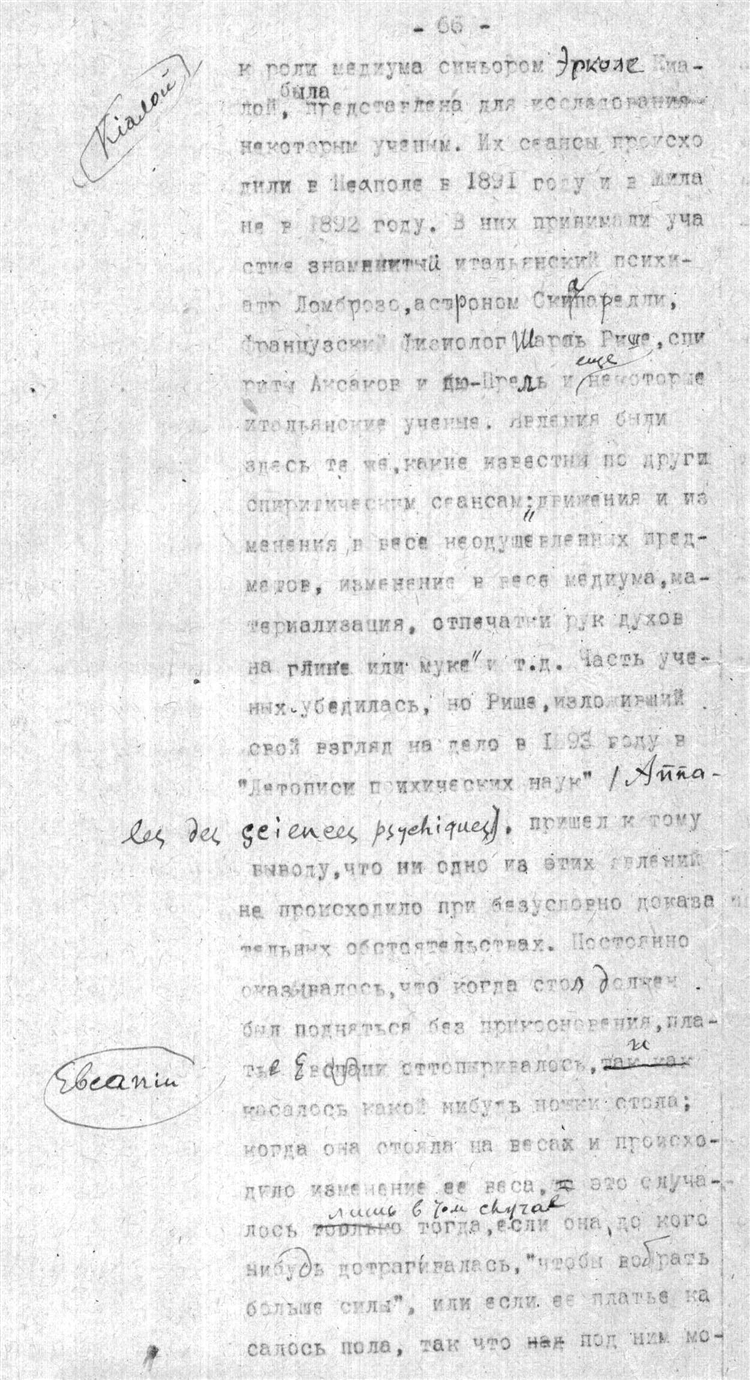 - 66 -
к роли медиума синьором Эрколе Киа-
Кiалой
была
лой, представлена для исследования
некоторым ученым. Их сеансы происхо
дили в Неаполе в 1891 году и в Мила
не в 1892 году. В них принимали уча
стие знаменитый итальянский психи-
атр Ломброзо, астроном Скиапарелли,
французский физиолог Шарль Рише, спи
еще
риты Аксаков и дю-Прель и некоторые
итальянские ученые. Явления были
здесь те же, какие известны по други
спиритическим сеансам: "движения и из
менения в весе неодушевленных пред-
метов, изменение в весе медиума, ма-
териализация, отпечатки рук духов
на глине или муке" и т.д. Часть уче-
ных убедилась, но Рише, изложивший
свой взгляд на дело в 1893 году в
"Летописи психических наук" /Anna-
les des sciences psychiques/, пришел к тому
выводу, что ни одно из этих явлений
не происходило при безусловно доказа
тельных обстоятельствах. Постоянно
оказывалось, что когда стол должен
был подняться без прикосновения, пла-
и
тье Евсапии оттопыривалось, так как
Евсапiи
касалось какой нибудь ножки стола;
когда она стояла на весах и происхо-
дило изменение ее веса, это случа-
лишь в том случае
лось только тогда, если она, до кого
нибудь дотрагивалась, "чтобы вобрать
больше силы", или если ее платье ка
салось пола, так что над под ним мо-